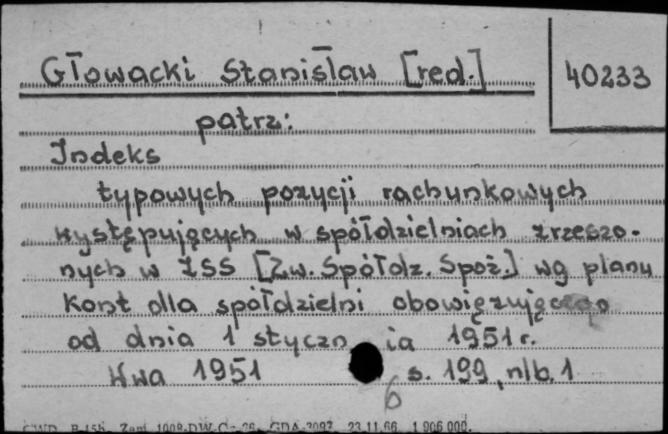 Głowacki Stanisław [red.]
40233
patrz:
Indeks
typowych pozycji rachunkowych
występujących w spółdzielniach zrzeszo-
nych w ZSS [Zw. Spółdz. Spoż.] wg planu
kont dla spółdzielni obowięzującego
od dnia 1 styczn ia 1951 r.
Wwa 1951 s. 199, nlb. 1
6
23.11.66 1 906 000.